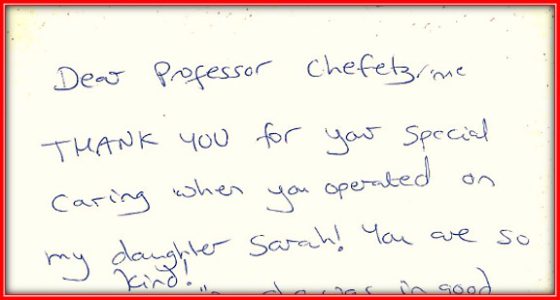 Dear Professor Chefetz
THANK YOU for your special
Caring when you operated on
my daughter Sarah! You are so
kind!
was in good